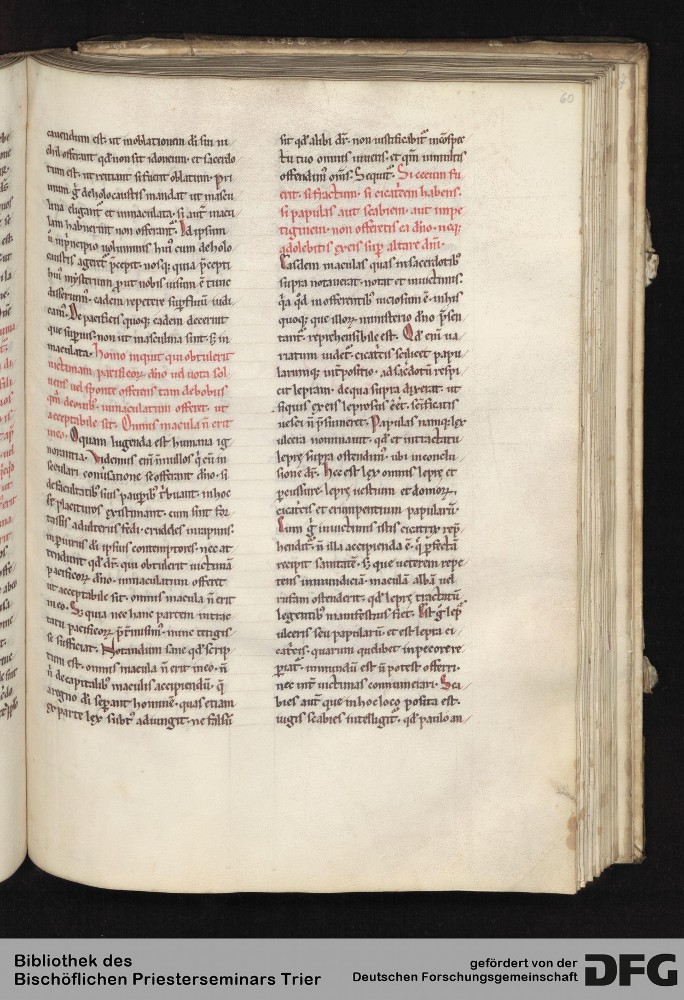 60
cauendum est. ut in oblationem dī sin in
chil offerant qđ non sit idoneum. et sacerdo
tum est. ut renuant si fuerit oblatum. Pri
mum g̃ de holocaustis mandat ut mascu
lina eligant̃ et inmaculata. si aut̃ macu
lam habuerint non offerant̃. Id ipsum
caustis ageret p̃cepit. nosq; quia p̃cepti
hui' mysterium prout nobis uisum ē tunc
disserium'. eadem repetere sup̃fluū iudi
cam'. De pacificis quoq; eadem decernit
que superius. non ut masculina sint. s; in
maculata. Homo inquit qui obtulerit
uictimam pacificoꝝ dn̄o uel uota sol
uens uel sponte offerens tam de bobus
qm̄ de ouib'. inmaculatum offeret. ut
acceptabile sit. Omnis macula ñ erit
in eo. O quam lugenda est humana ig
norantia. Videmus eni nonnullos q̇ cū in
seculari conuersatione se offerant dn̄o. si
de facultatib' suis pauperib' t̃buant. in hoc
se placituros existimant. cum sint for
tassis adulteri. fedi. crudeles. in rapinis.
in periuriis dī ipsius contemptores. nec at
tendunt qđ dr̄. qui obtulerit uictimā
pacificoꝝ dn̄o. inmaculatum offeret
ut acceptabile sit. omnis macula ñ erit
in eo. S; quia nec hanc partem intrac
tatā pacificoꝝ p̃t̃misim'. nunc tetigis
se sufficiat. Notandum sane qđ scrip
tum est. omnis macula ñ erit in eo. ñ
ñ de capitalib' maculis accipiendū. q̃
a regno dī sep̃ant hominē. quas etiam
ex parte lex subt̃ adiungit. ne falsū
sit qđ alibi dr̄. non iustificabit̃ in c̄spec
tu tuo omnis uiuens. et qm̄ in multis
offendim' oms. Sequit̃. Si cecum fu
erit. si fractum. si cicatricem habens.
si papulas aut scabiem. aut impe
tiginem. non offeretis ea dn̄o. neq;
adolebitis ex eis sup̃ altare dn̄i.
Easdem maculas quas in sacerdotib'
supra notauerat. notat et in uictimis.
quoq; que illoꝝ ministerio dn̄o p̃sen
tant̃. reprehensibile est. Qđ eni ua
riatum uidet̃. cicatricis scilicet papu
larumq; int̃positio. ad sacerdotū respi
cit lepram. de qua supra dixerat. ut
siquis ex eis leprosus eēt. sc̄ificatis
uesci ñ p̃sumeret. Papulas namq; lex
ulcera nominauit. qđ et in tractatu
lepre supra ostendim'. ubi in conclu
sione dr̄. Hec est lex omnis lepre et
percussure. lepre uestium et domoꝝ.
cicatricis et erumpentium papularū.
Cum g̃ in uictimis istis cicatrix rep̃
hendit̃. ñ illa accipienda ē. q̃ p̃fectā
recipit sanitatē. s; que ueterem repe
tens inmundiciā. maculā albā uel
rufam ostenderit. qđ lepre tractatū
legentib' manifestius fiet. Est g̃ lep̃
ulceris seu papularū. et est lepra ci
catricis. quarum quelibet in pecore re
periat̃. inmundū est ñ potest offerri.
nec int̃ uictimas connumerari. Sca
bies aut̃ que in hoc loco posita est.
iugis scabies intelligit̃. qđ paulo an
Bibliothek des
Bischöflichen Priesterseminars Trier
gefördert von der
Deutschen Forschungsgemeinschaft
DFG